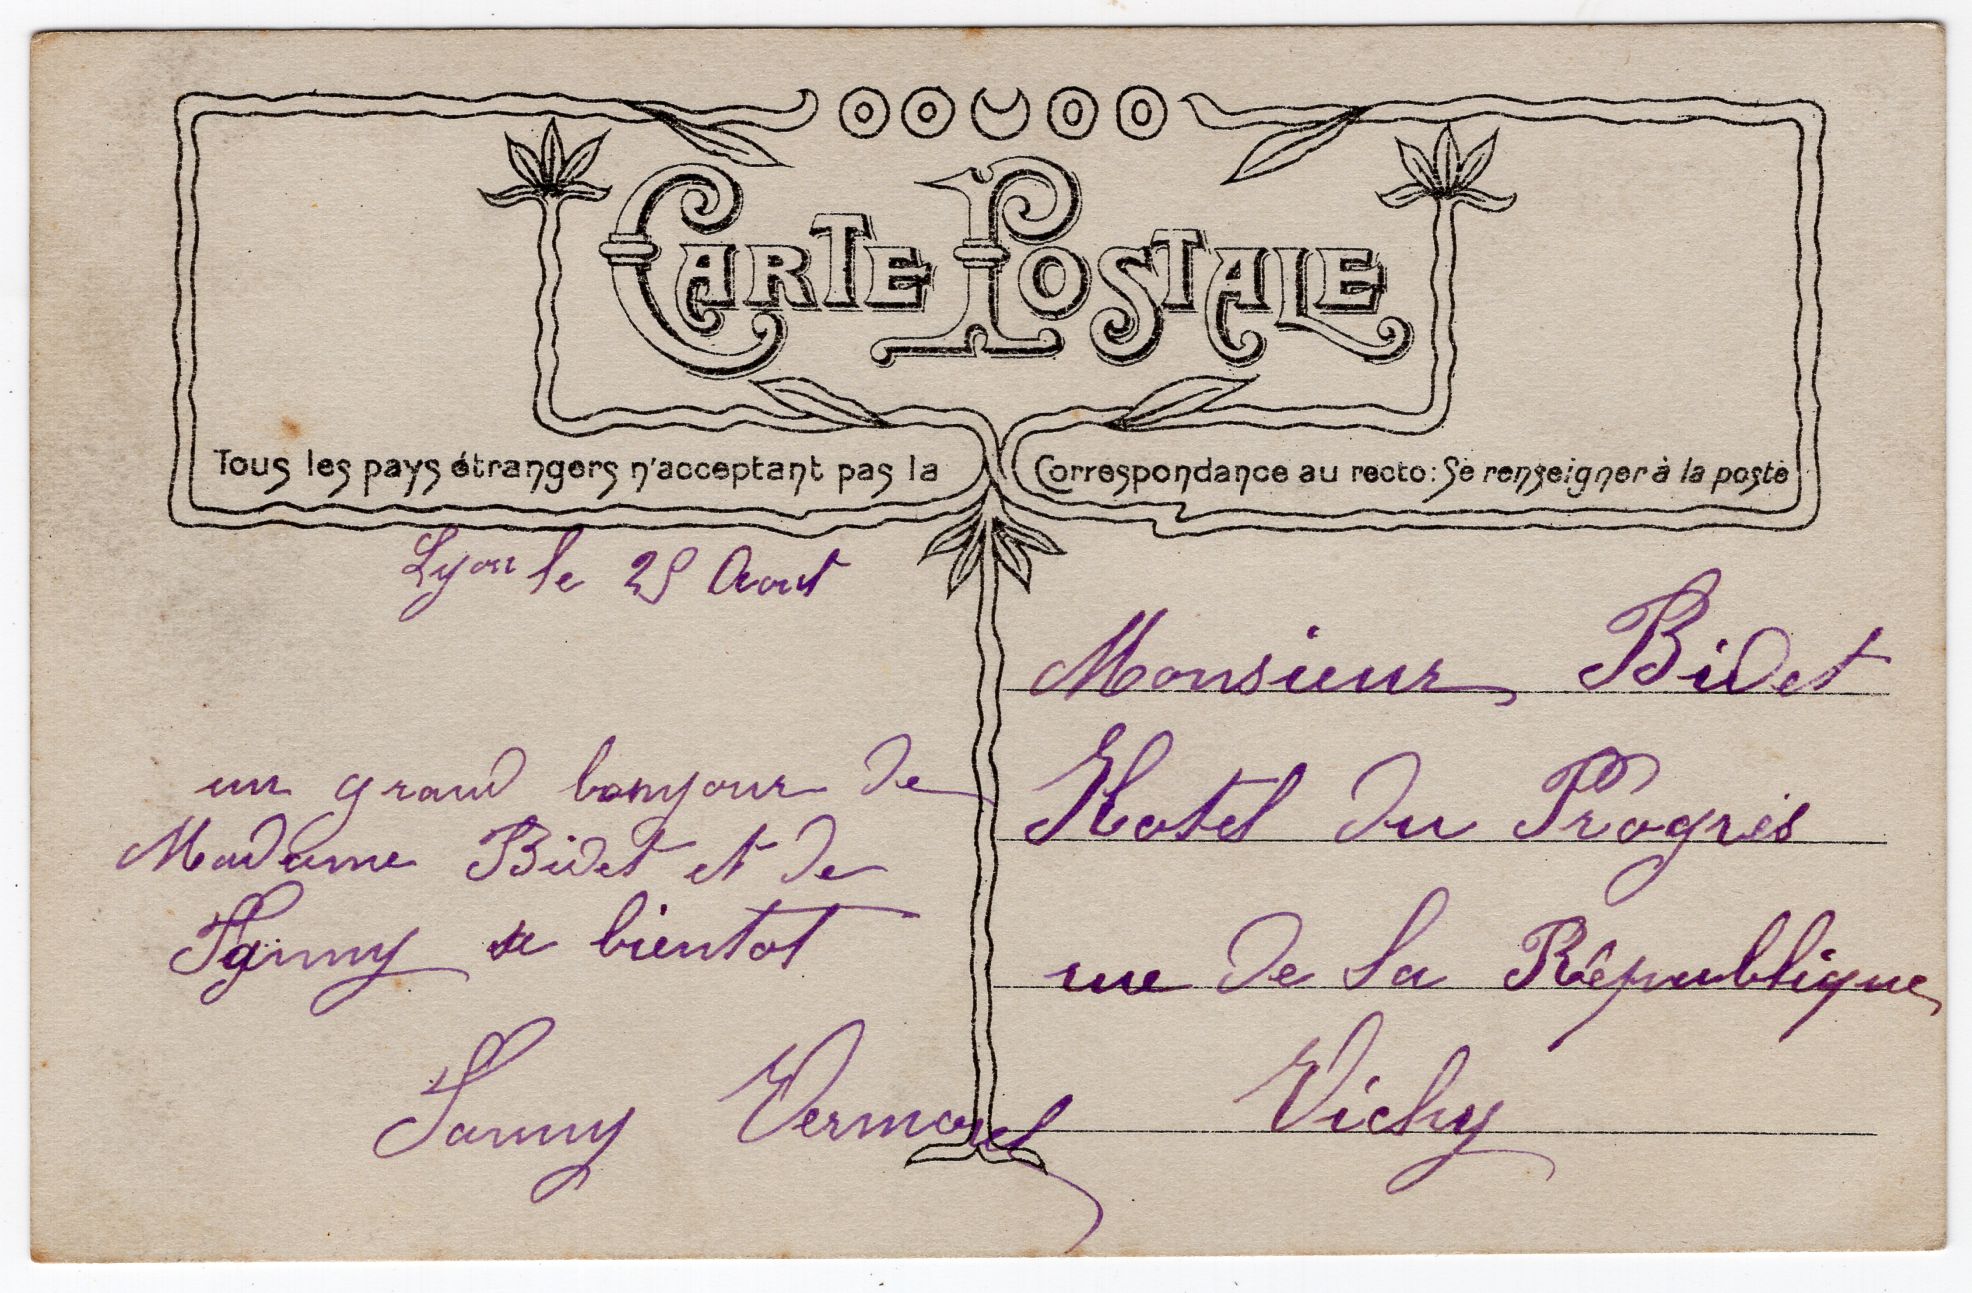 CARTE POSTALE
Tous les pays étrangers n'acceptant pas la Correspondance au recto: Se renseigner à la poste
Lyon le 25 Aout
un grand bonjour de
Madame Bidet et de
Fanny a bientot
Fanny Vermorel
Monsieur Bidet
Hotel du Progrès
rue de la République
Vichy